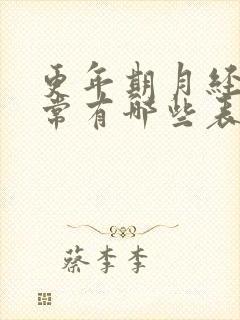 更年期月经
常有哪些表
蔡李李